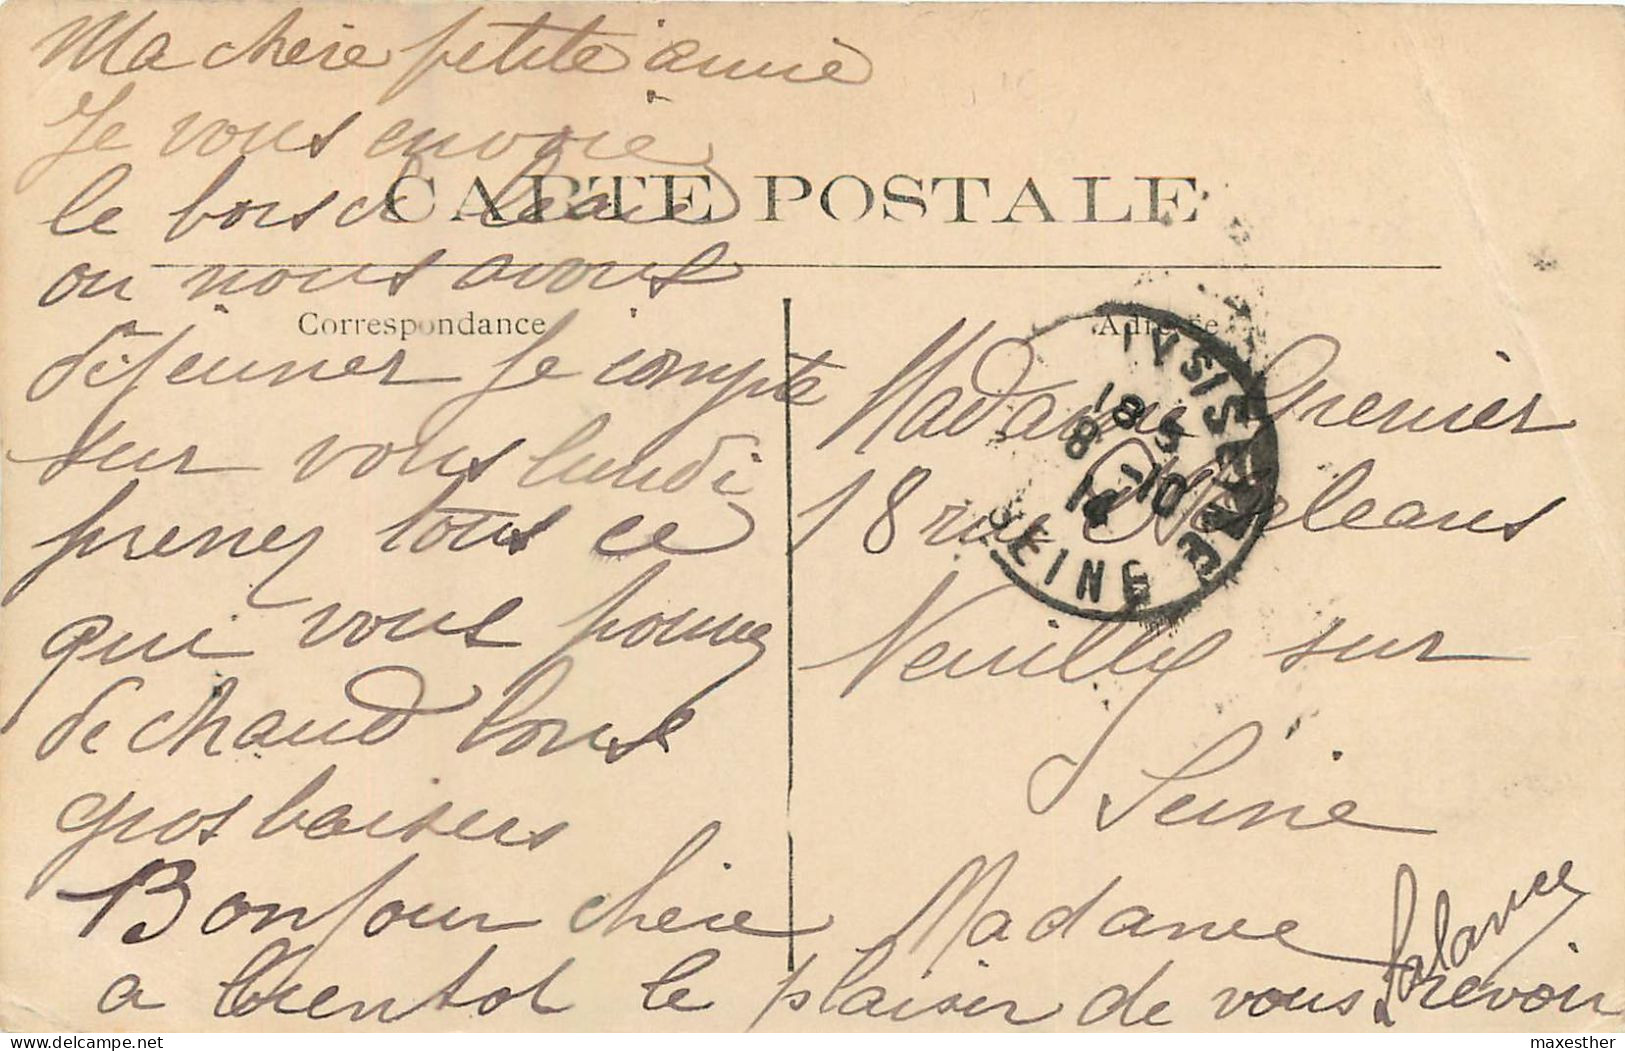 Ma chère petite amie
Je vous envoie
le bois de
CARTE POSTALE
ou nous avons
Correspondance
Adresse
dèjeuner Je compte
sur vous lundi
prenez tous ce
qui vous pourrez
de chaud bons
gros baisers
Bonjour chère Madame
a bientot le plaisir de vous revoir
Madame Grenier
18 rue d'Orleans
Neuilly sur
Seine
18 5
8 10
14
SEINE
maxesther